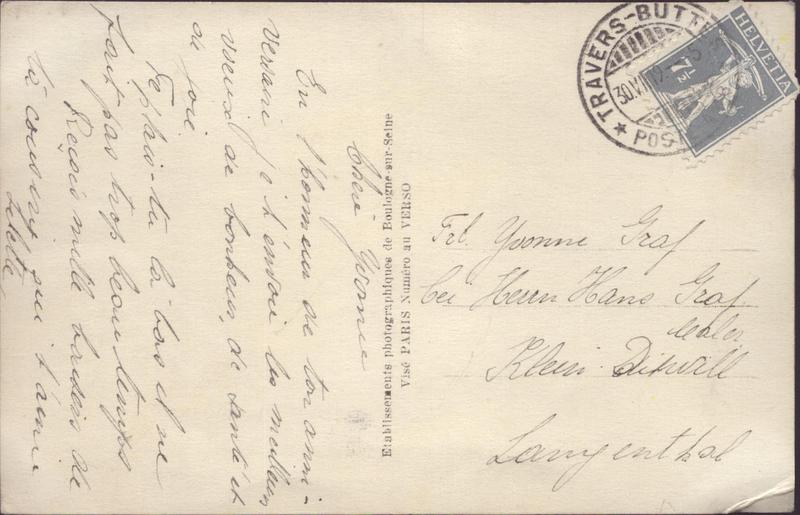 Chère Yvonne
En l'honneur de ton anni-
versaire je t'envoie les meilleurs
voeux de bonheur, de santé et
de joie.
Te plais-tu là bas et ne
fait pas trop beau temps
Reçois mille baisers de
ta cousine qui t'aime
Etablissements photographiques de Boulogne-sur-Seine
Visé PARIS Numéro au VERSO
TRAVERS-BUTT
30.VI
HELVETIA
7½
Frl. Yvonne Graf
bei Herrn Hans Graf
Maler
Klein Ditwill
Langenthal